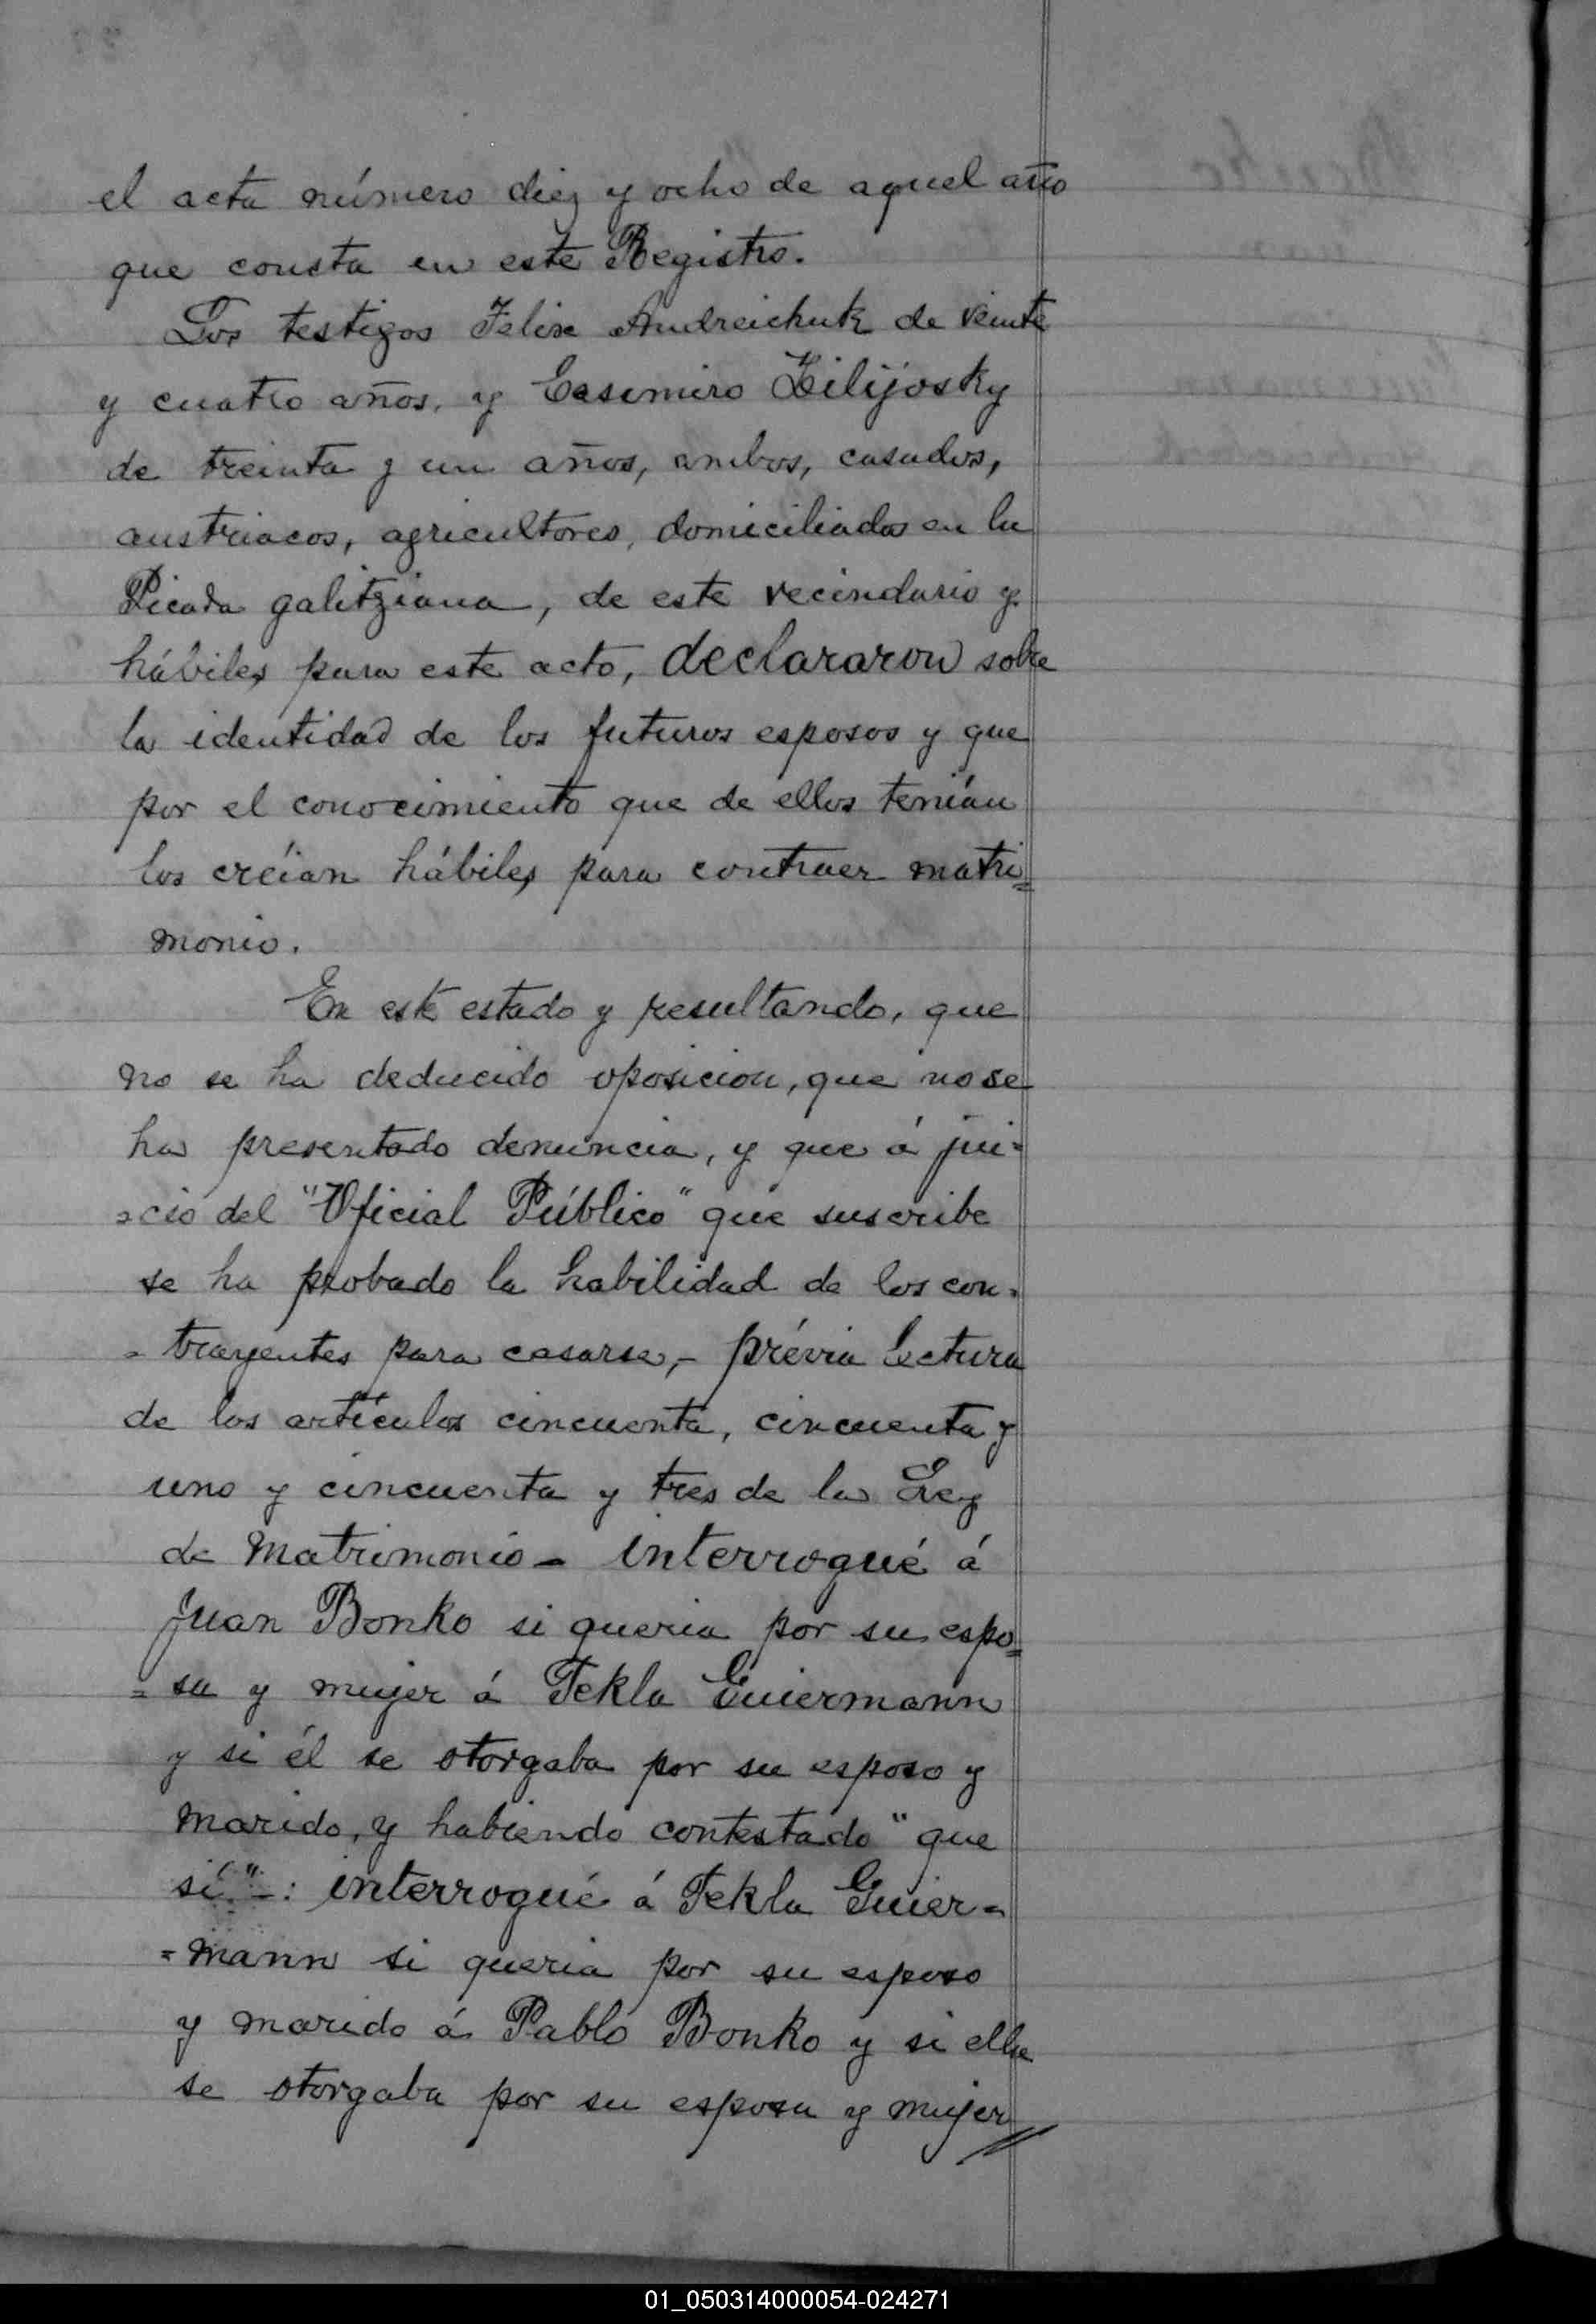 el acta número diez y ocho de aquel año
que consta en este Registro.
Los testigos Felix Andreichuk de veinte
y cuatro años, y Casimiro Zilijosky
de treinta y un años, ambos, casados,
austriacos, agricultores, domiciliados en la
Picada galitziana, de este vecindario y
hábiles para este acto, declararon sobre
la identidad de los futuros esposos y que
por el conocimiento que de ellos tenían
los creían hábiles para contraer matri=
monio.
En este estado y resultando, que
no se ha deducido oposicion, que no se
ha presentado denuncia, y que á jui=
=cio del "Oficial Público" que suscribe
se ha probado la habilidad de los con=
=trayentes para casarse,- prévia lectura
de los artículos cincuenta, cincuenta y
uno y cincuenta y tres de la Ley
de Matrimonio - interrogué á
Juan Bonko si queria por su espo=
=sa y mujer á Tekla Guiermann
y si él se otorgaba por su esposo y
marido, y habiendo contestado "que
sí"-: interrogué á Tekla Guier=
=mann si queria por su esposo
y marido á Pablo Bonko y si ella
se otorgaba por su esposa y mujer//
01_050314000054-024271